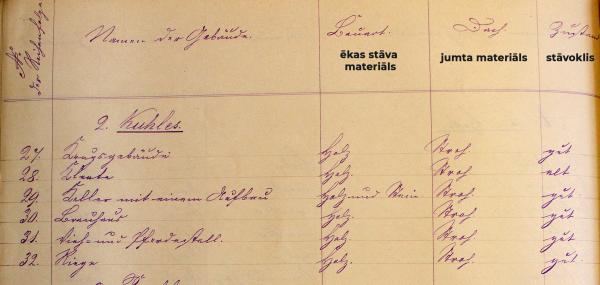 № der Reihenfolge
Namen der Gebäude. Bauart. Dach. Zustand
ēkas stāva materiāls jumta materiāls stāvoklis
2. Kuhles.
27. Holz. Stroh gut
28. Kleete Holz. Stroh alt
29. Keller mit einem Aufbau Holz und Stein Stroh. gut
30. Brauhaus Holz. Stroh. gut
31. Vieh- und Pferdestall. Holz. Stroh. gut
32. Riege Holz. Stroh. gut